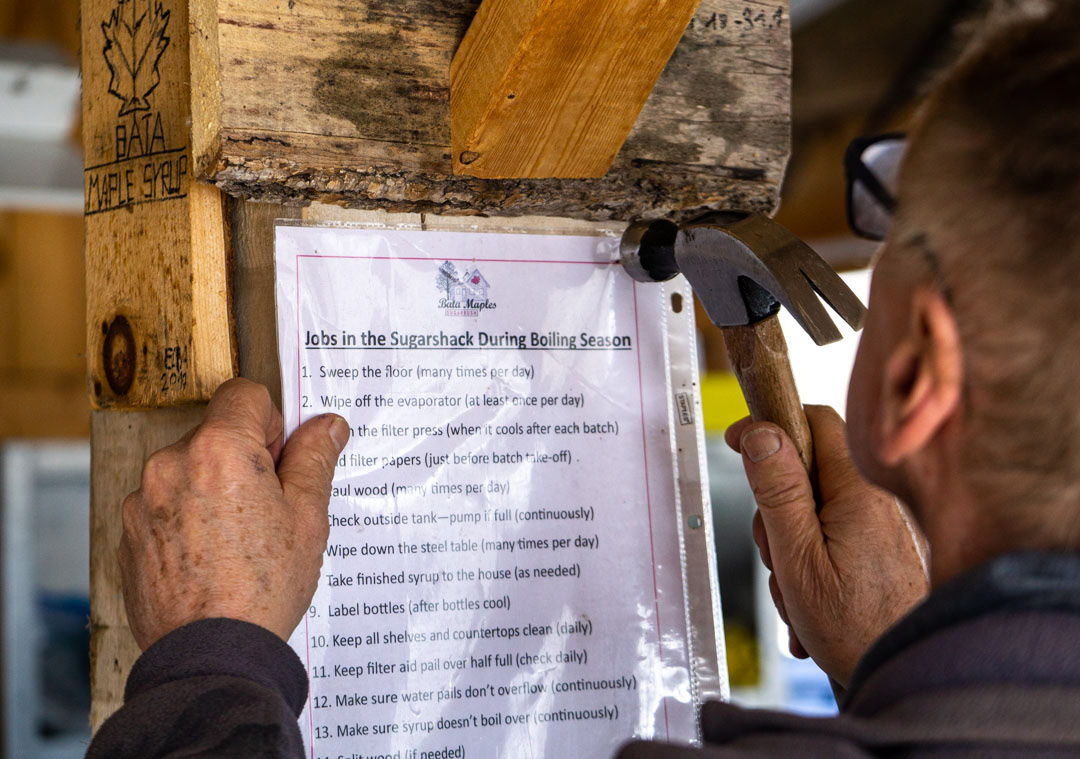 BATA
MAPLE SYRUP
Bata Maples
SUGARBUSH
Jobs in the Sugarshack During Boiling Season
1. Sweep the floor (many times per day)
2. Wipe off the evaporator (at least once per day)
the filter press (when it cools after each batch)
filter papers (just before batch take-off)
wood (many times per day)
Check outside tank—pump if full (continuously)
Wipe down the steel table (many times per day)
Take finished syrup to the house (as needed)
9. Label bottles (after bottles cool)
10. Keep all shelves and countertops clean (daily)
11. Keep filter aid pail over half full (check daily)
12. Make sure water pails don't overflow (continuously)
13. Make sure syrup doesn't boil over (continuously)
14. Split wood (if needed)
STAPLES